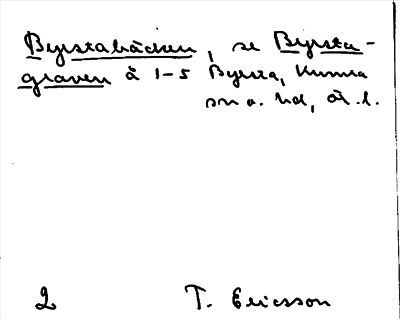 Byrstabäcken, se Byrsta-
graven å 1-5 Byrsta, Kumla
sn o. hd, Ör. l.
2 T. Ericsson